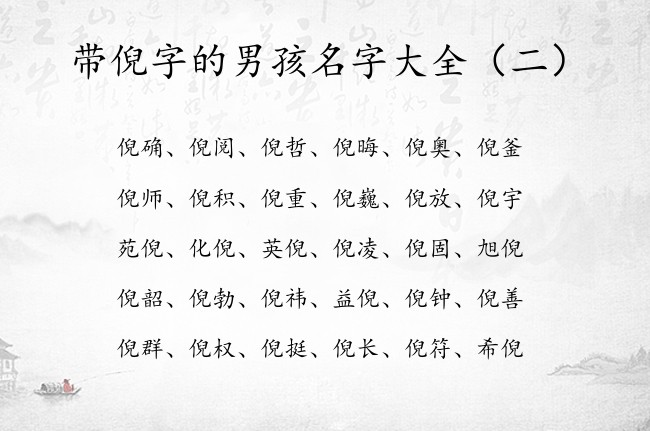 带倪字的男孩名字大全（二）
倪确、倪阅、倪哲、倪晦、倪奥、倪釜
倪师、倪积、倪重、倪巍、倪放、倪宇
苑倪、化倪、英倪、倪凌、倪固、旭倪
倪韶、倪勃、倪祎、益倪、倪钟、倪善
倪群、倪权、倪挺、倪长、倪符、希倪